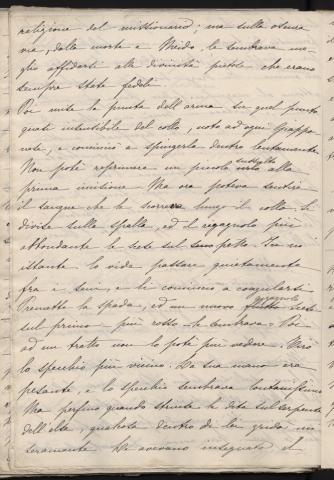 religione del missionario; ma sulla oscura
via, della morte a Meido, le sembrava me-
glio affidarsi alle divinità pietose che erano
sempre state fedeli.
Poi mise la punta dell'arma su quel punto
quasi insensibile del collo, noto ad ogni Giappo-
nese, e cominciò a spingerla dentro lentamente.
Non potè reprimere un piccolo sussulto alla
prima incisione. Ma ora poteva sentire
il sangue che le scorreva lungo il collo. Si
divise sulla spalla, ed il rigagnolo più
abbondante le scese sul suo petto. In un
istante lo vide passare quietamente
fra i seni, e lì cominciò a coagularsi.
Premette la spada, ed un nuovo rigagnolo scese
sul primo più rosso le sembrava. Poi
ad un tratto non lo potè più vedere. Mirò
lo specchio più vicino. La sua mano era
pesante, e lo specchio sembrava lontanissimo.
Ma perfino quando strinse le dita sul serpente
dell'elsa, qualcosa dentro di lei gridò mi-
seramente. Le avevano insegnato il